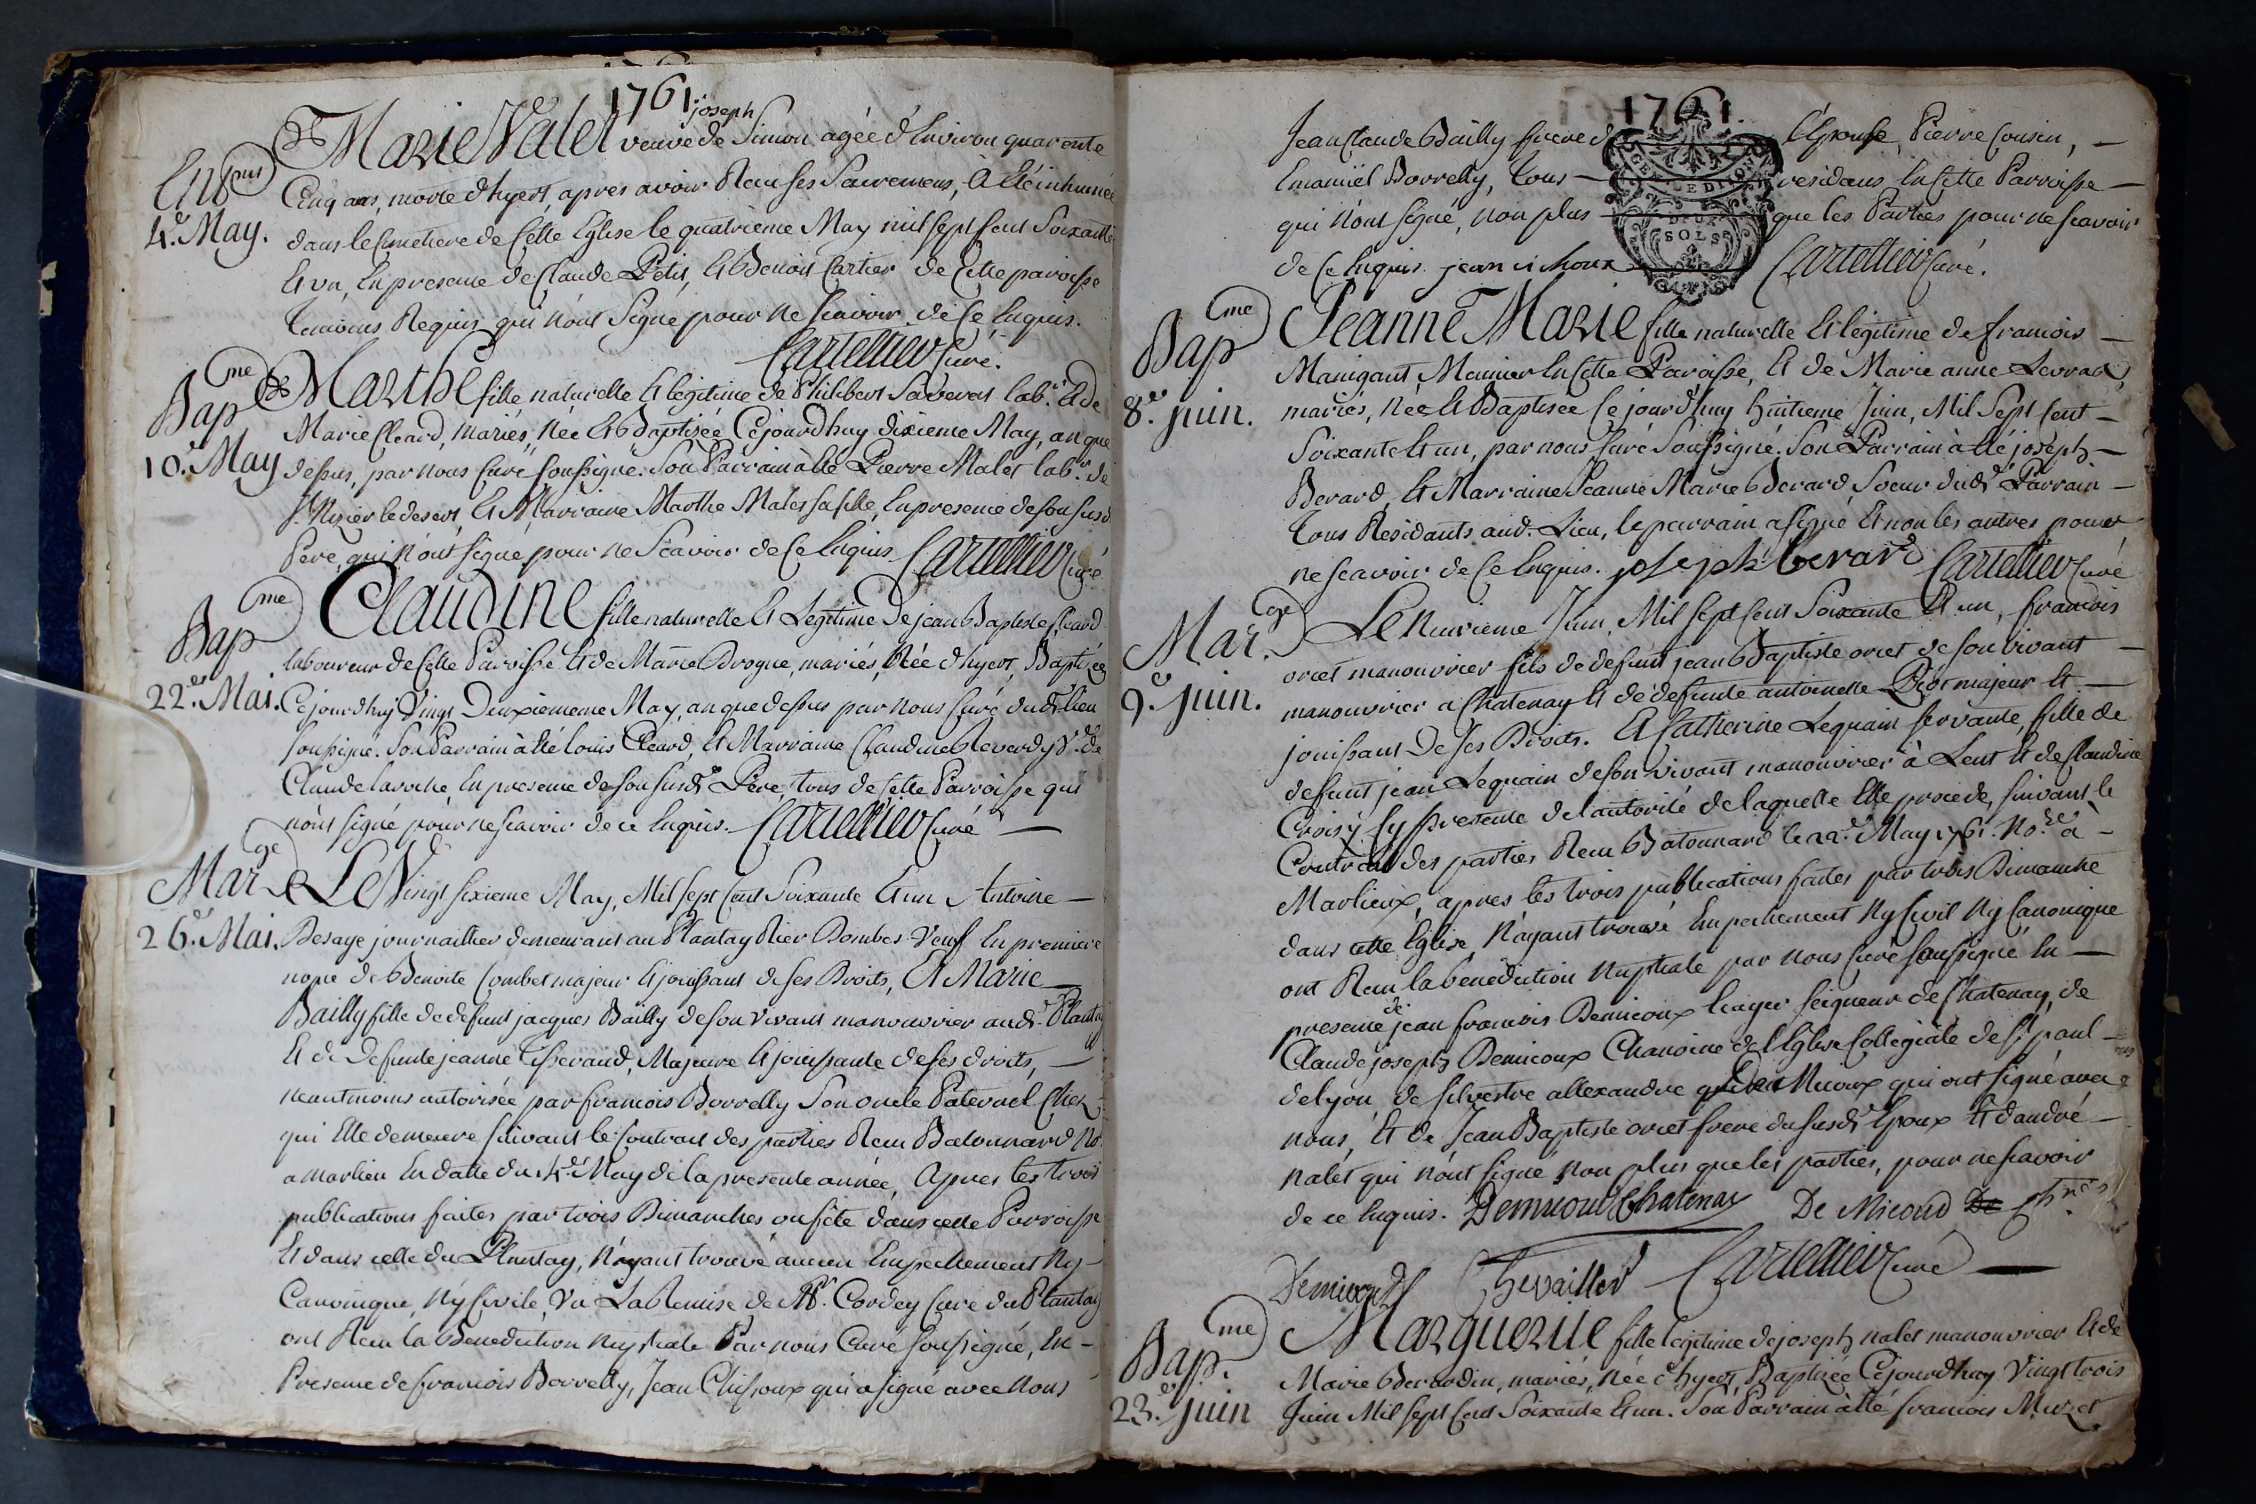 1761.
joseph
Marie Nalet veuve de Simon agée d'Environ quarente
Ent
4e. May.
Cinq ans, morte d'hyert, apres avoir Recu ses Sacremens, A été inhumée
dans le Cimetiere de Cette Eglise le quatrieme May mil sept cent Soixante
Et un, En presence de Claude Petit, Et Benoit Cartier de Cette paroisse
temoins Requis qui n'ont Signé pour ne Scavoir de Ce Enquis.
Cartellier Curé.
Bapme
10e. May
Marthe fille naturelle Et légitime de Philibert Saverat lab.r Et de
Marie Cleard, mariés, Née Et Baptisée Cejourdhuy dixieme May, an que
dessus, par nous Curé soussigné. Son Parrain à été Pierre Malet lab.r de
St. Nizier le desert, Et Marraine Marthe Malet sa fille, En presence de son susd.
Pere, qui n'ont signé pour ne Scavoir de Ce Enquis Cartellier Curé
Bapme
22e. Mai.
Claudine fille naturelle Et Legitime de jean Baptiste Cleard
laboureur de Cette Paroisse Et de Marie Brogue, mariés, Née d'hyert, Baptisée
Cejourdhuy Vingt Deuxiememe May, an que dessus par nous Curé dud. lieu
soussigné. Son Parrain à été Louis Cleard, Et Marraine Claudine Reverdy V.e de
Claude Laroche, En presence de son susd. Pere, tous de Cette Parroisse qui
n'ont signé pour ne scavoir de ce Enquis. Cartellier Curé
Marge
26e. Mai.
Le Vingt sixieme May, Mil sept Cent Soixante Et un Antoine
Besaye journaillier demeurant au Plantay Rier Dombes Veuf En premiere
nopce de Benoite Combet majeur Et jouissant de ses Droits, Et Marie
Bailly fille de defunt jacques Bailly de son vivant manouvrier aud. Plantay
Et de defunte jeanne Tisserand, Majeure Et jouissante de ses droits,
neantmoins autorisée par francois Borrelly Son oncle Paternel Chez
qui Elle demeure suivant le Contrat des parties Recu Batonnard No.
a marlieu En datte du 4e. May de la presente année, Apres les trois
publications faites par trois Dimanches ou fête dans cette Parroisse
Et dans celle du Plantay, N'ayant trouvé aucun Empechement Ny
Canonique, Ny Civile, Vu La Remise de Mr. Cordey Curé du Plantay
ont Recu la Benediction Nuptiale Par nous Curé soussigné, En
Presence de francois Borrelly, Jean Chichoux qui a signé avec Nous
1761.
Jean Claude Bailly frere de l'Epouse, Pierre Cousin,
Emanuël Borrelly, tous residans En Cette Parroisse
qui n'ont signé, non plus que les Parties pour ne scavoir
de Ce Enquis. jean chichoux Cartellier Curé.
GEN. LE DIJON
DEUX
SOLS
Bapme
8e. juin.
Jeanne Marie fille naturelle Et légitime de francois
Manigant Meunier En Cette Paroisse, Et de Marie anne Levrat
mariés, Née Et Baptisée Ce jourdhuy huitieme Juin, Mil Sept Cent
Soixante Et un, par nous Curé Soussigné. Son Parrain à été joseph
Berard, Et Marraine Jeanne Marie Berard, Soeur dud. Parrain
tous Residants aud. Lieu, le parrain a signé Et non les autres pour
ne scavoir de Ce Enquis. joseph berard Cartellier Curé
Marge
9e. juin.
Le Neuvieme Juin, Mil sept cent Soixante Et un, francois
orcet manouvrier fils de defunt jean Baptiste orcet de son vivant
manouvrier a Chatenay Et de defunte antoinette Piot majeur Et
jouissant de ses Droits. Et Catherine Lequain servante, fille de
defunt jean Lequain de son vivant manouvrier à Lent Et de Claudine
Croisy Cy presente de l'autorité de laquelle Elle procede, suivant le
Contrat des parties Recu Batonnard le 22e. May 1761. No.re à
Marlieux, apres les trois publications faites par trois Dimanche
dans cette Eglise, N'ayant trouvé Empechement Ny Civil Ny Canonique
ont Recu la benediction Nuptiale par nous Curé soussigné En
presence de jean francois Demicoux Ecuyer seigneur de Chatenay, de
Claude joseph Demicoux Chanoine de l'Eglise Collegiale de St. paul
de lyon de silvestre allexandre Demicoux qui ont signé avec
nous, Et de Jean Baptiste orcet frere du susd. Epoux Et d'andré
nalet qui n'ont signé non plus que les parties, pour ne scavoir
de ce Enquis. Demicoud Chatenay De Micoud De
Demicoud Chevallier Cartellier Curé
Bapme
23e. juin
Marguerite fille legitime de joseph nalet manouvrier Et de
Marie Bernardin, mariés, Née d'hyert, Baptisée Cejourdhuy Vingt trois
Juin Mil sept Cent Soixante Et un. Son Parrain à été francois Muzet